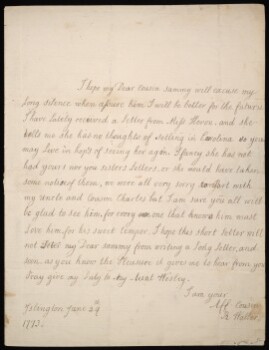 I hope my Dear cousin sammy will excuse my
long silence when assure him I will be better for the future
I have lately received a letter from Miss Hovon, and she
tells me she has no thoughts of settling in Carolina so you
may live in hope's of seeing her again. I fancy she has not
had yours nor your sisters letters, or she would have taken
some notice of them, we were all very sorry to part with
my uncle and Cousin Charles but I am sure you all will
be glad to see him, for every one that knows him must
love him for his sweet temper. I hope this short letter will
not my Dear sammy from writing a long letter, and
soon, as you know the Pleasure it gives me to hear from you
Pray give my Duty to my Aunt Wesley.
I am your
Aff Cousin
Islington June 24th
1773.